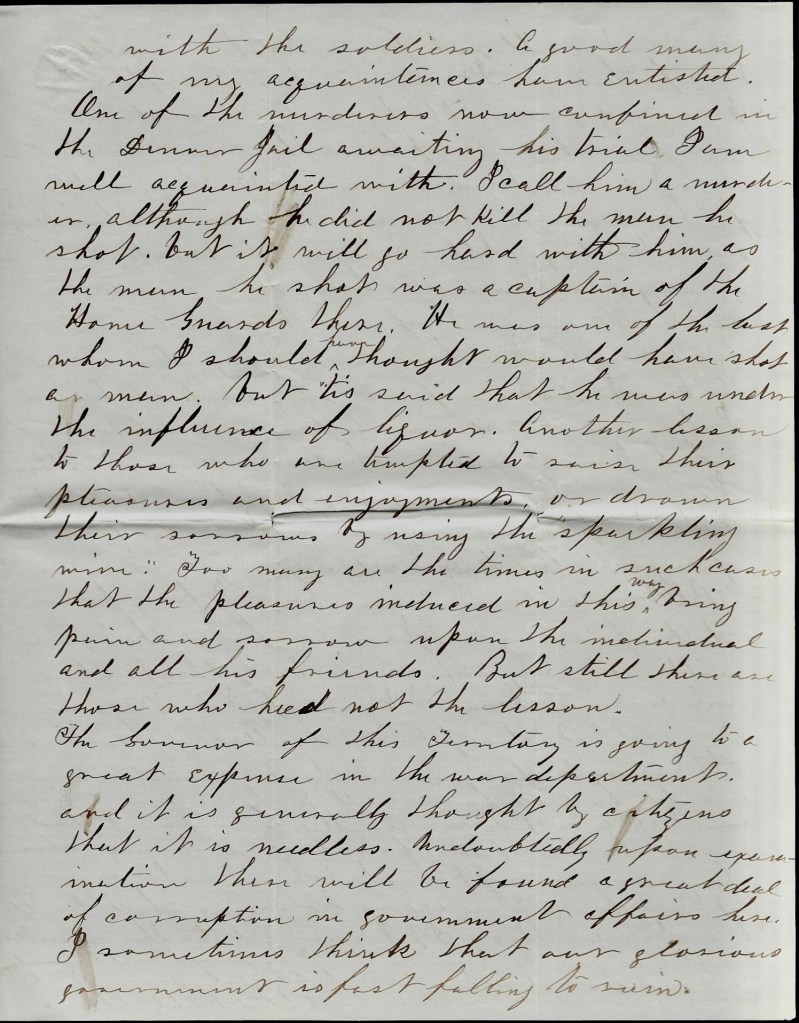 with the soldiers. A good many
of my acquaintences have Entisted.
One of the murderers now confined in
the Denver Jail awaiting his trial, I am
well acquainted with. I call him a murder-
er, although he did not kill the man he
shot. but it will go hard with him, as
the man he shot was a captain of the
Home Guards there. He was one of the last
whom I should never thought would have shot
a man. but 'tis said that he was under
the influence of liquor. Another lesson
to those who are tempted to raise their
pleasures and enjoyments, or drown
their sorrows by using the "sparkling
wine." Too many are the times in such cases
that the pleasures induced in this way bring
pain and sorrow upon the individual
and all his friends. But still there are
those who heed not the lesson.
The Govenor of this Territory is going to a
great Expense in the war department.
and it is generally thought by citizens
that it is needless. Undoubtedly upon exam-
ination there will be found a great deal
of corruption in government affairs here.
I sometimes think that our glorious
government is fast falling to ruin.